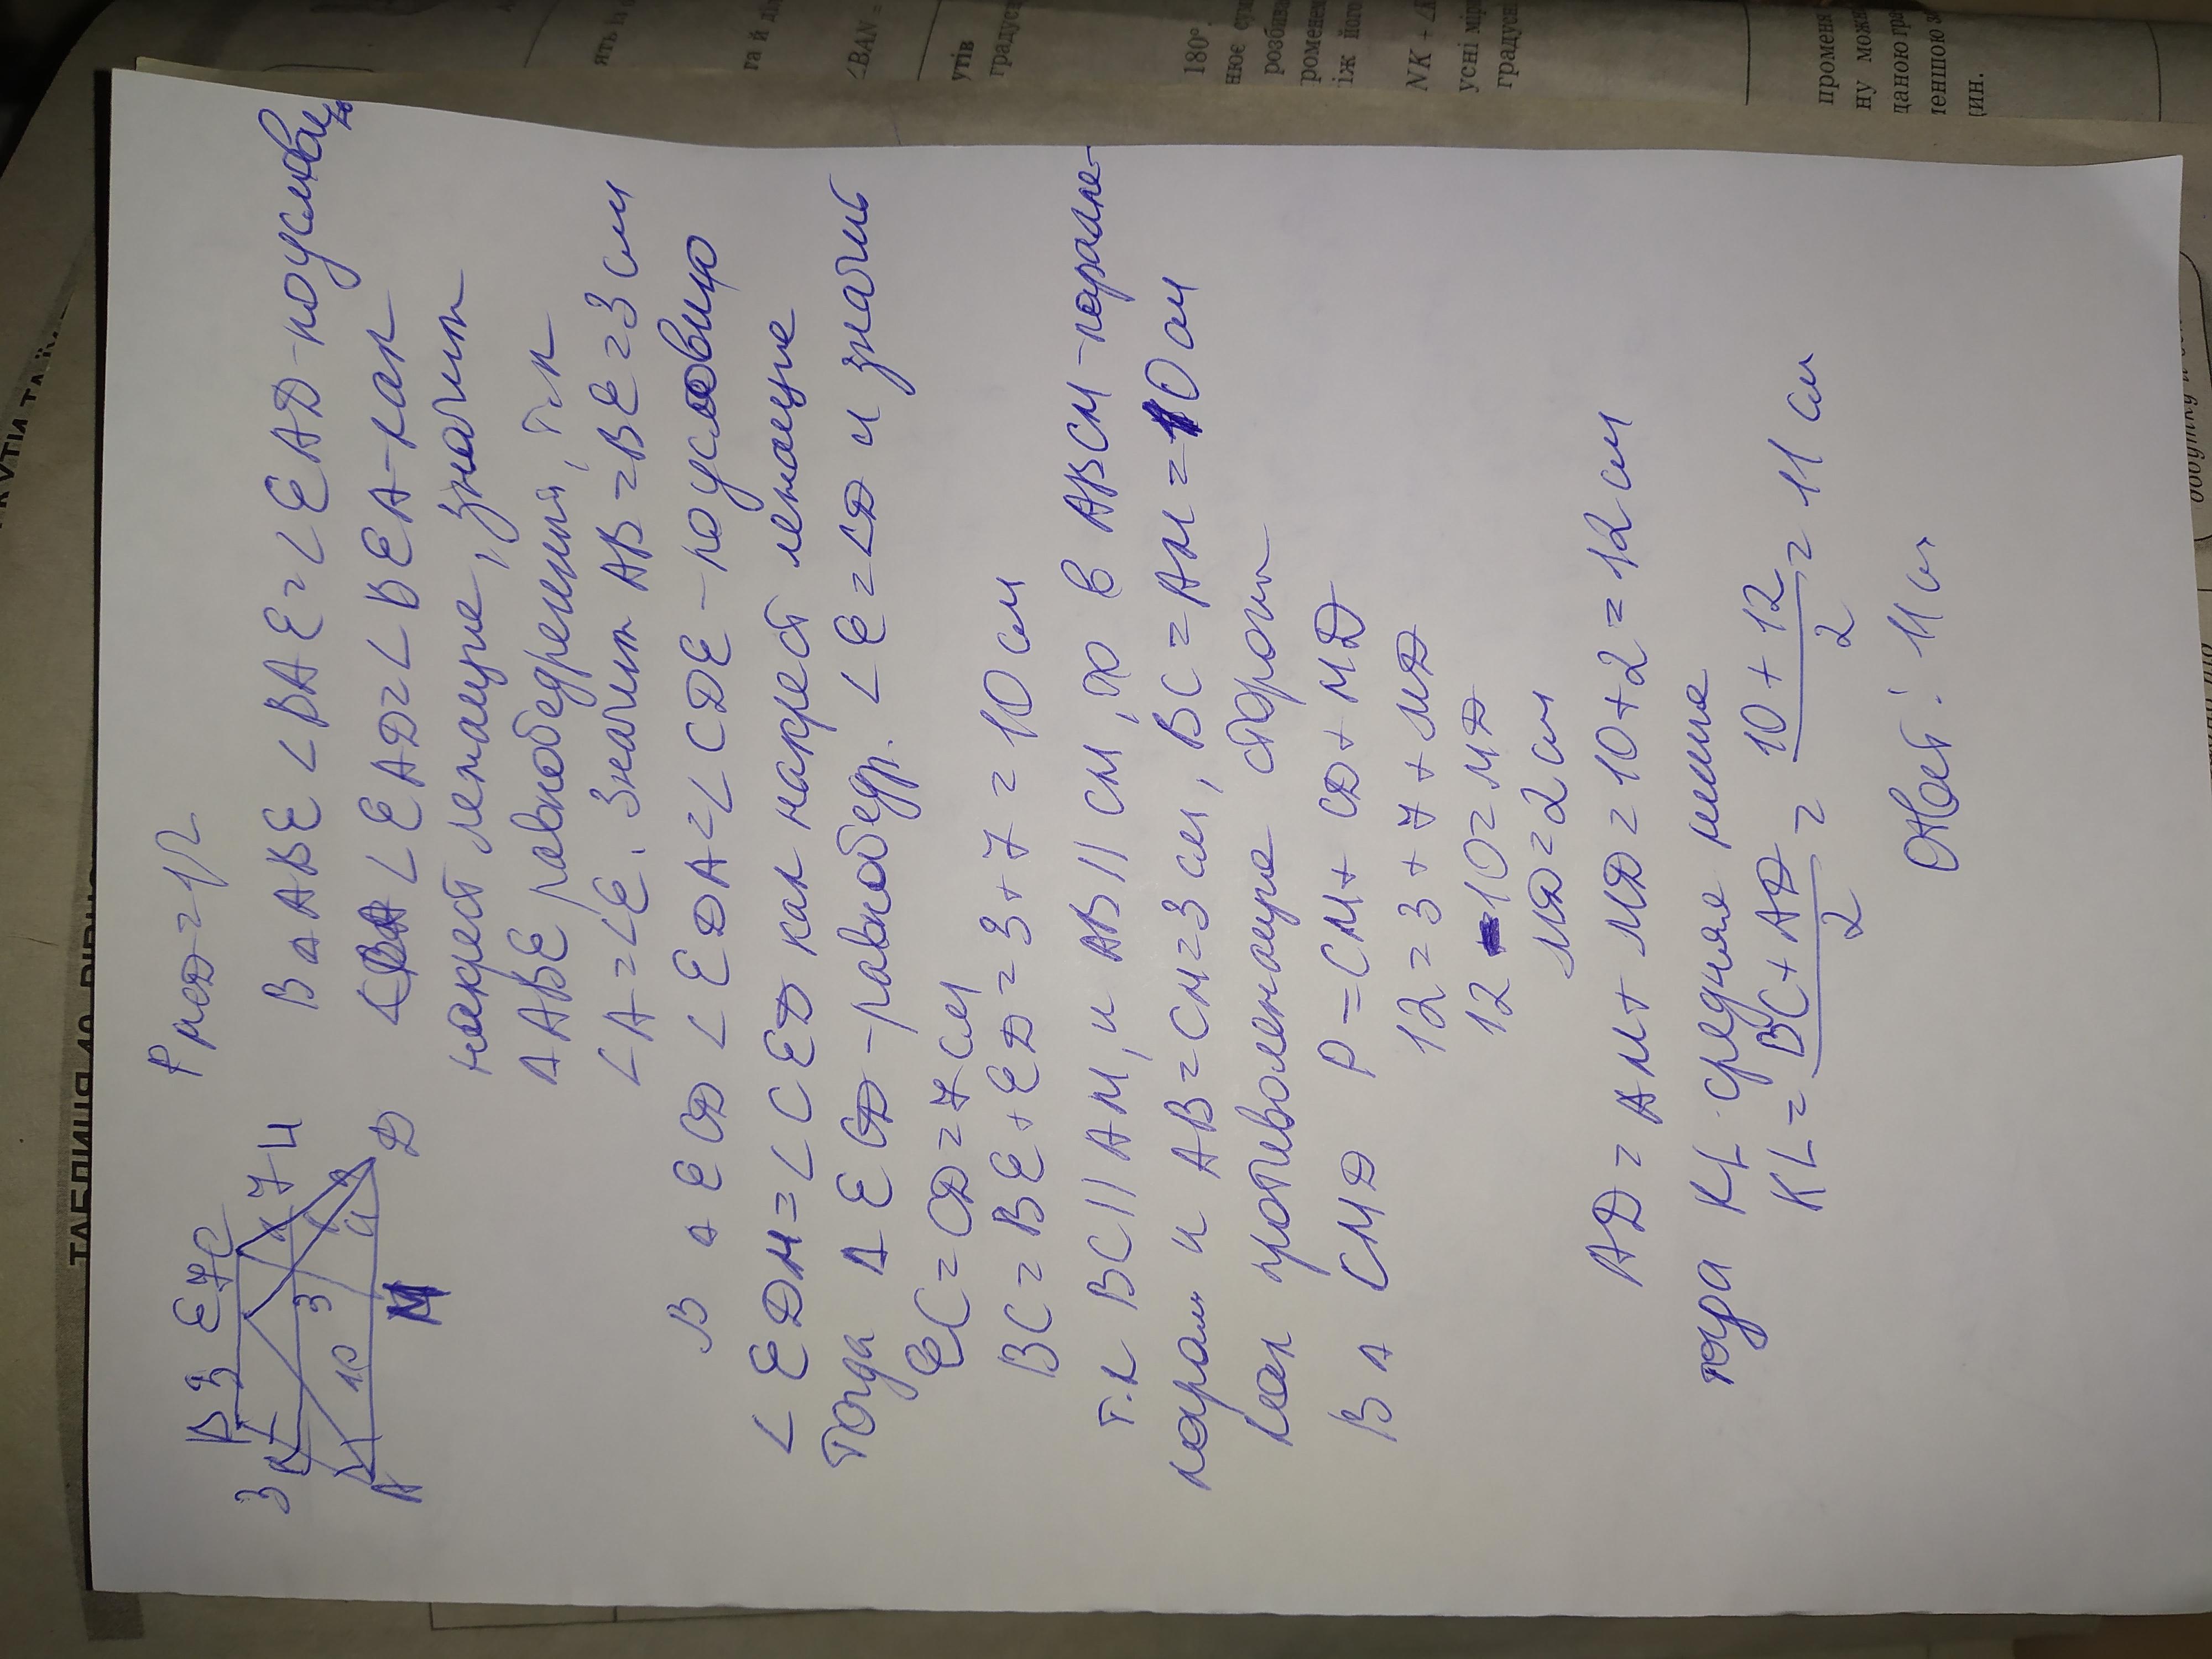 P мсд = 12
B 3 E 7 C
3
K
7
L
10
3
4
A
M
D
В △ ABE ∠BAE = ∠EAD - по условию
∠EAD = ∠BEA - как
накрест лежащие, значит
△ ABE равнобедренный, т.к
∠A = ∠E. Значит AB = BE = 3 см
В △ ECD ∠EDA = ∠CDE - по условию
∠EDM = ∠CED как накрест лежащие
Тогда △ ECD - равнобедр. ∠E = ∠D и значит
EC = CD = 7 см
BC = BE + ED = 3 + 7 = 10 см
т.к BC || AM, и AB || CM, то в ABCM - паралле-
лограм и AB = CM = 3 см, BC = AM = 10 см
как противолежащие стороны
В △ CMD P = CM + CD + MD
12 = 3 + 7 + MD
12 - 10 = MD
MD = 2 см
AD = AM + MD = 10 + 2 = 12 см
тогда KL средняя линия
KL = BC + AD / 2 = 10 + 12 / 2 = 11 см
Ответ: 11 см
ТАБЛИЦЯ 10
180°
∠BAN =
утів
градусн
розбива
променем
іж його
NK + ∠K
усні мірн
градусн
променя
ну можн
даною гра
меншою за